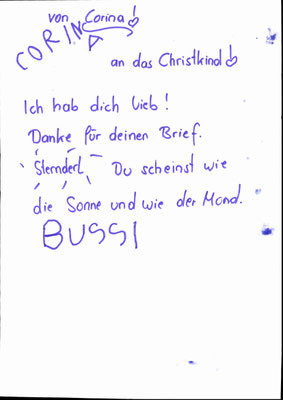 von Corina!
CORINA
an das Christkind!
Ich hab dich lieb!
Danke für deinen Brief.
Sternderl Du scheinst wie
die Sonne und wie der Mond.
BUSSI